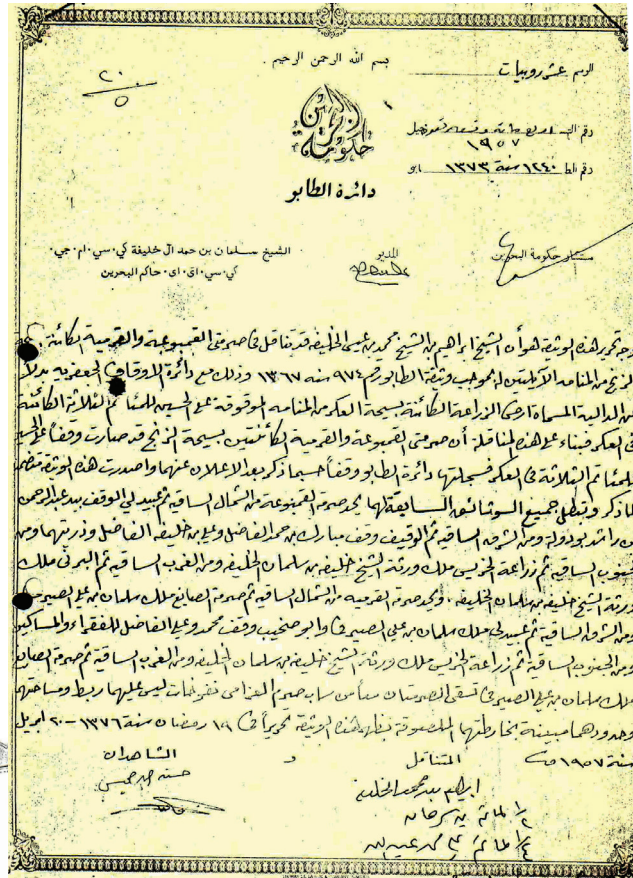 بسم الله الرحمن الرحيم
الرسم عشر روبيات
٢٠/٥
حكومة البحرين
١٩٥٧
١٢٤٠ سنة ١٣٧٣
دائرة الطابو
مستشار حكومة البحرين
المدير
الشيخ سلمان بن حمد آل خليفة كي.سي.ام.جي.
كي.سي.اي.اي. حاكم البحرين
وجه تحرير هذه الوثيقة هو أن الشيخ ابراهيم بن الشيخ محمد بن عيسى الخليفة قد تناقل في صرمتي القمبوعية والقرمية الكائنة
الزنج من المنامه الآيلتين له بموجب وثيقة الطابو رقم ٩٧٤ سنه ١٣٦٧ وذلك مع دائرة الاوقاف الجعفريه بدلا
عن الدالية المسماة ارض الزراعة الكائنة بسيحة العكر من المنامه الموقوفة على الحسين للمئا تم الثلاثة الكائنة
في العكر فبناء على هذه المناقلة أن صرمتي القمبوعة والقرمية الكائنتين بسيحة الزنج قد صارت وقفاً على الحسين
للمئا تم الثلاثة في العكر فسجلتها دائرة الطابو وقفاً حسبما ذكر بعد الاعلان عنهما واصدرت هذه الوثيقة
لما ذكر وتبطل جميع الوثائق السابقة لهما يحد صرمة القمبوعة من الشمال الساقيه ثم عبيد لي الوقف بيد عبد الرحمن
بن راشد بودوله ومن الشرق الساقيه ثم الوقيف وقف مبارك بن حمد الفاضل وعلي بن خليفه الفاضل وذريتهما ومن
الجنوب الساقيه ثم زراعة الخريس ملك ورثة الشيخ خليفه بن سلمان الخليفه ومن الغرب الساقيه ثم البرني ملك
ورثة الشيخ خليفه بن سلمان الخليفه. ويحد صرمة القرميه من الشمال الساقيه ثم صرمة الصايغ ملك سلمان بن علي الصيرفي
ومن الشرق الساقيه ثم عبيد لي ملك سلمان بن علي الصيرفي وابو صنيحيب وقف محمد وعلي الفاضل للفقراء والمساكين
ومن الجنوب الساقيه ثم زراعة الخريس ملك ورثة الشيخ خليفه بن سلمان الخليفه ومن الغرب الساقيه ثم صرمة الصايغ
ملك سلمان بن علي الصيرفي تسقى الصرمتان من ساب صرم ليس عليهما ربط ومساحتهما
وحدودهما مبينة بخارطتها الملصوقة بظهر هذه الوثيقة تحريراً في ١٩ رمضان سنة ١٣٧٦ - ٢٠ ابريل
سنة ١٩٥٧
المتناقل
الشاهدان
ابراهيم بن محمد الخليفة